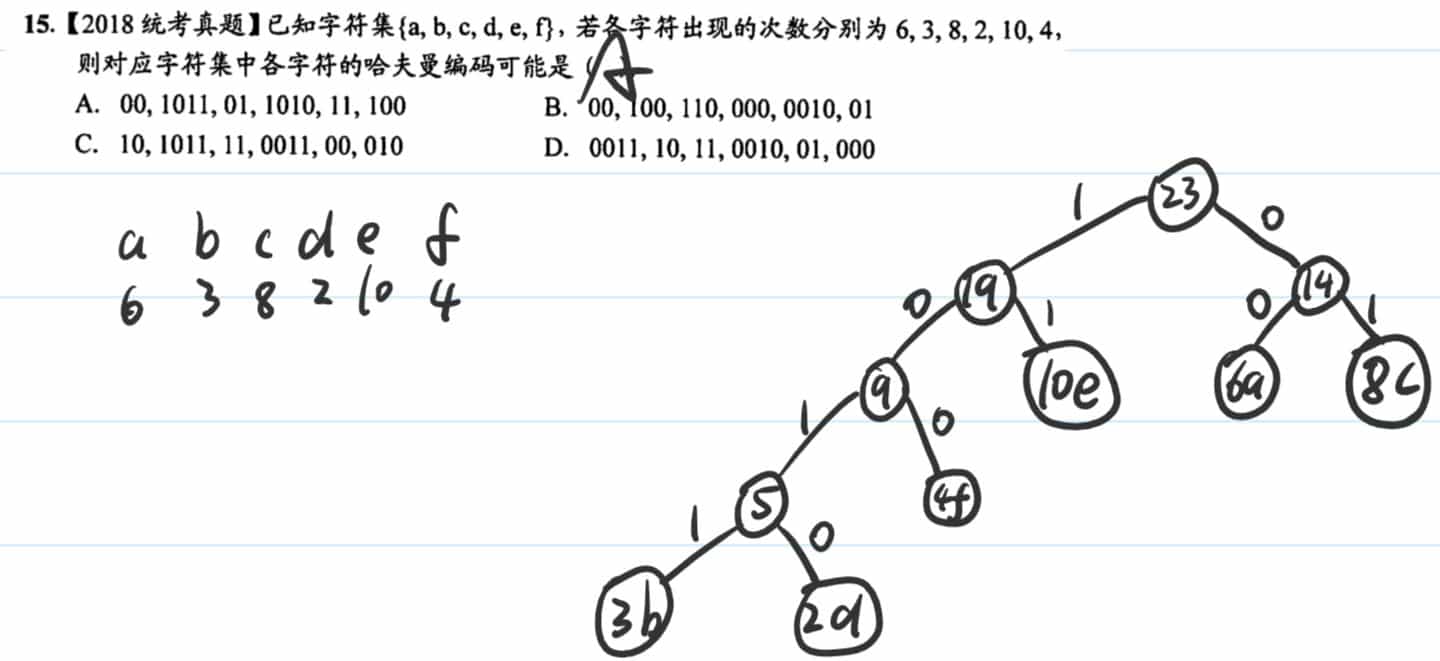 15.【2018 统考真题】已知字符集{a, b, c, d, e, f}，若各字符出现的次数分别为 6, 3, 8, 2, 10, 4，
则对应字符集中各字符的哈夫曼编码可能是（ A
A. 00, 1011, 01, 1010, 11, 100
B. 00, 100, 110, 000, 0010, 01
C. 10, 1011, 11, 0011, 00, 010
D. 0011, 10, 11, 0010, 01, 000
a b c d e f
6 3 8 2 10 4
23
1 0
19 14
0 1 0 1
9 10e 6a 8c
1 0
5 4f
1 0
3b 2d